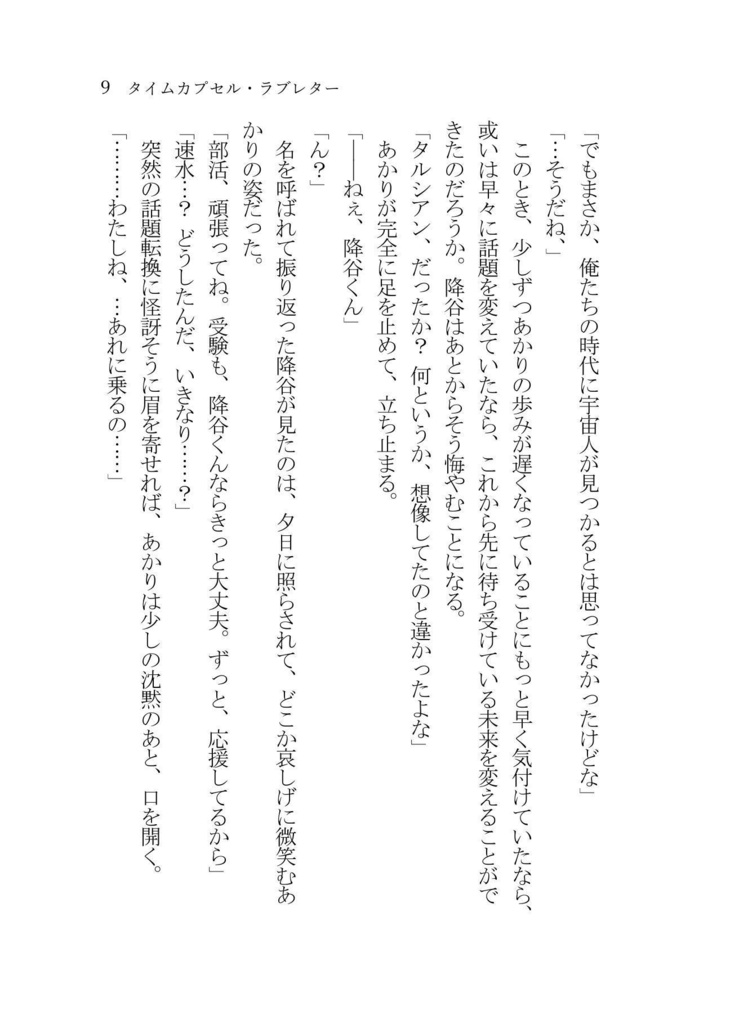 9 タイムカプセル・ラブレター
「でもまさか、俺たちの時代に宇宙人が見つかるとは思ってなかったけどな」
「…そうだね、」
このとき、少しずつあかりの歩みが遅くなっていることにもっと早く気付けていたなら、
或いは早々に話題を変えていたなら、これから先に待ち受けている未来を変えることがで
きたのだろうか。降谷はあとからそう悔やむことになる。
「タルシアン、だったか？ 何というか、想像してたのと違かったよな」
あかりが完全に足を止めて、立ち止まる。
「――ねぇ、降谷くん」
「ん？」
名を呼ばれて振り返った降谷が見たのは、夕日に照らされて、どこか哀しげに微笑むあ
かりの姿だった。
「部活、頑張ってね。受験も、降谷くんならきっと大丈夫。ずっと、応援してるから」
「速水…？ どうしたんだ、いきなり……？」
突然の話題転換に怪訝そうに眉を寄せれば、あかりは少しの沈黙のあと、口を開く。
「………わたしね、…あれに乗るの……」